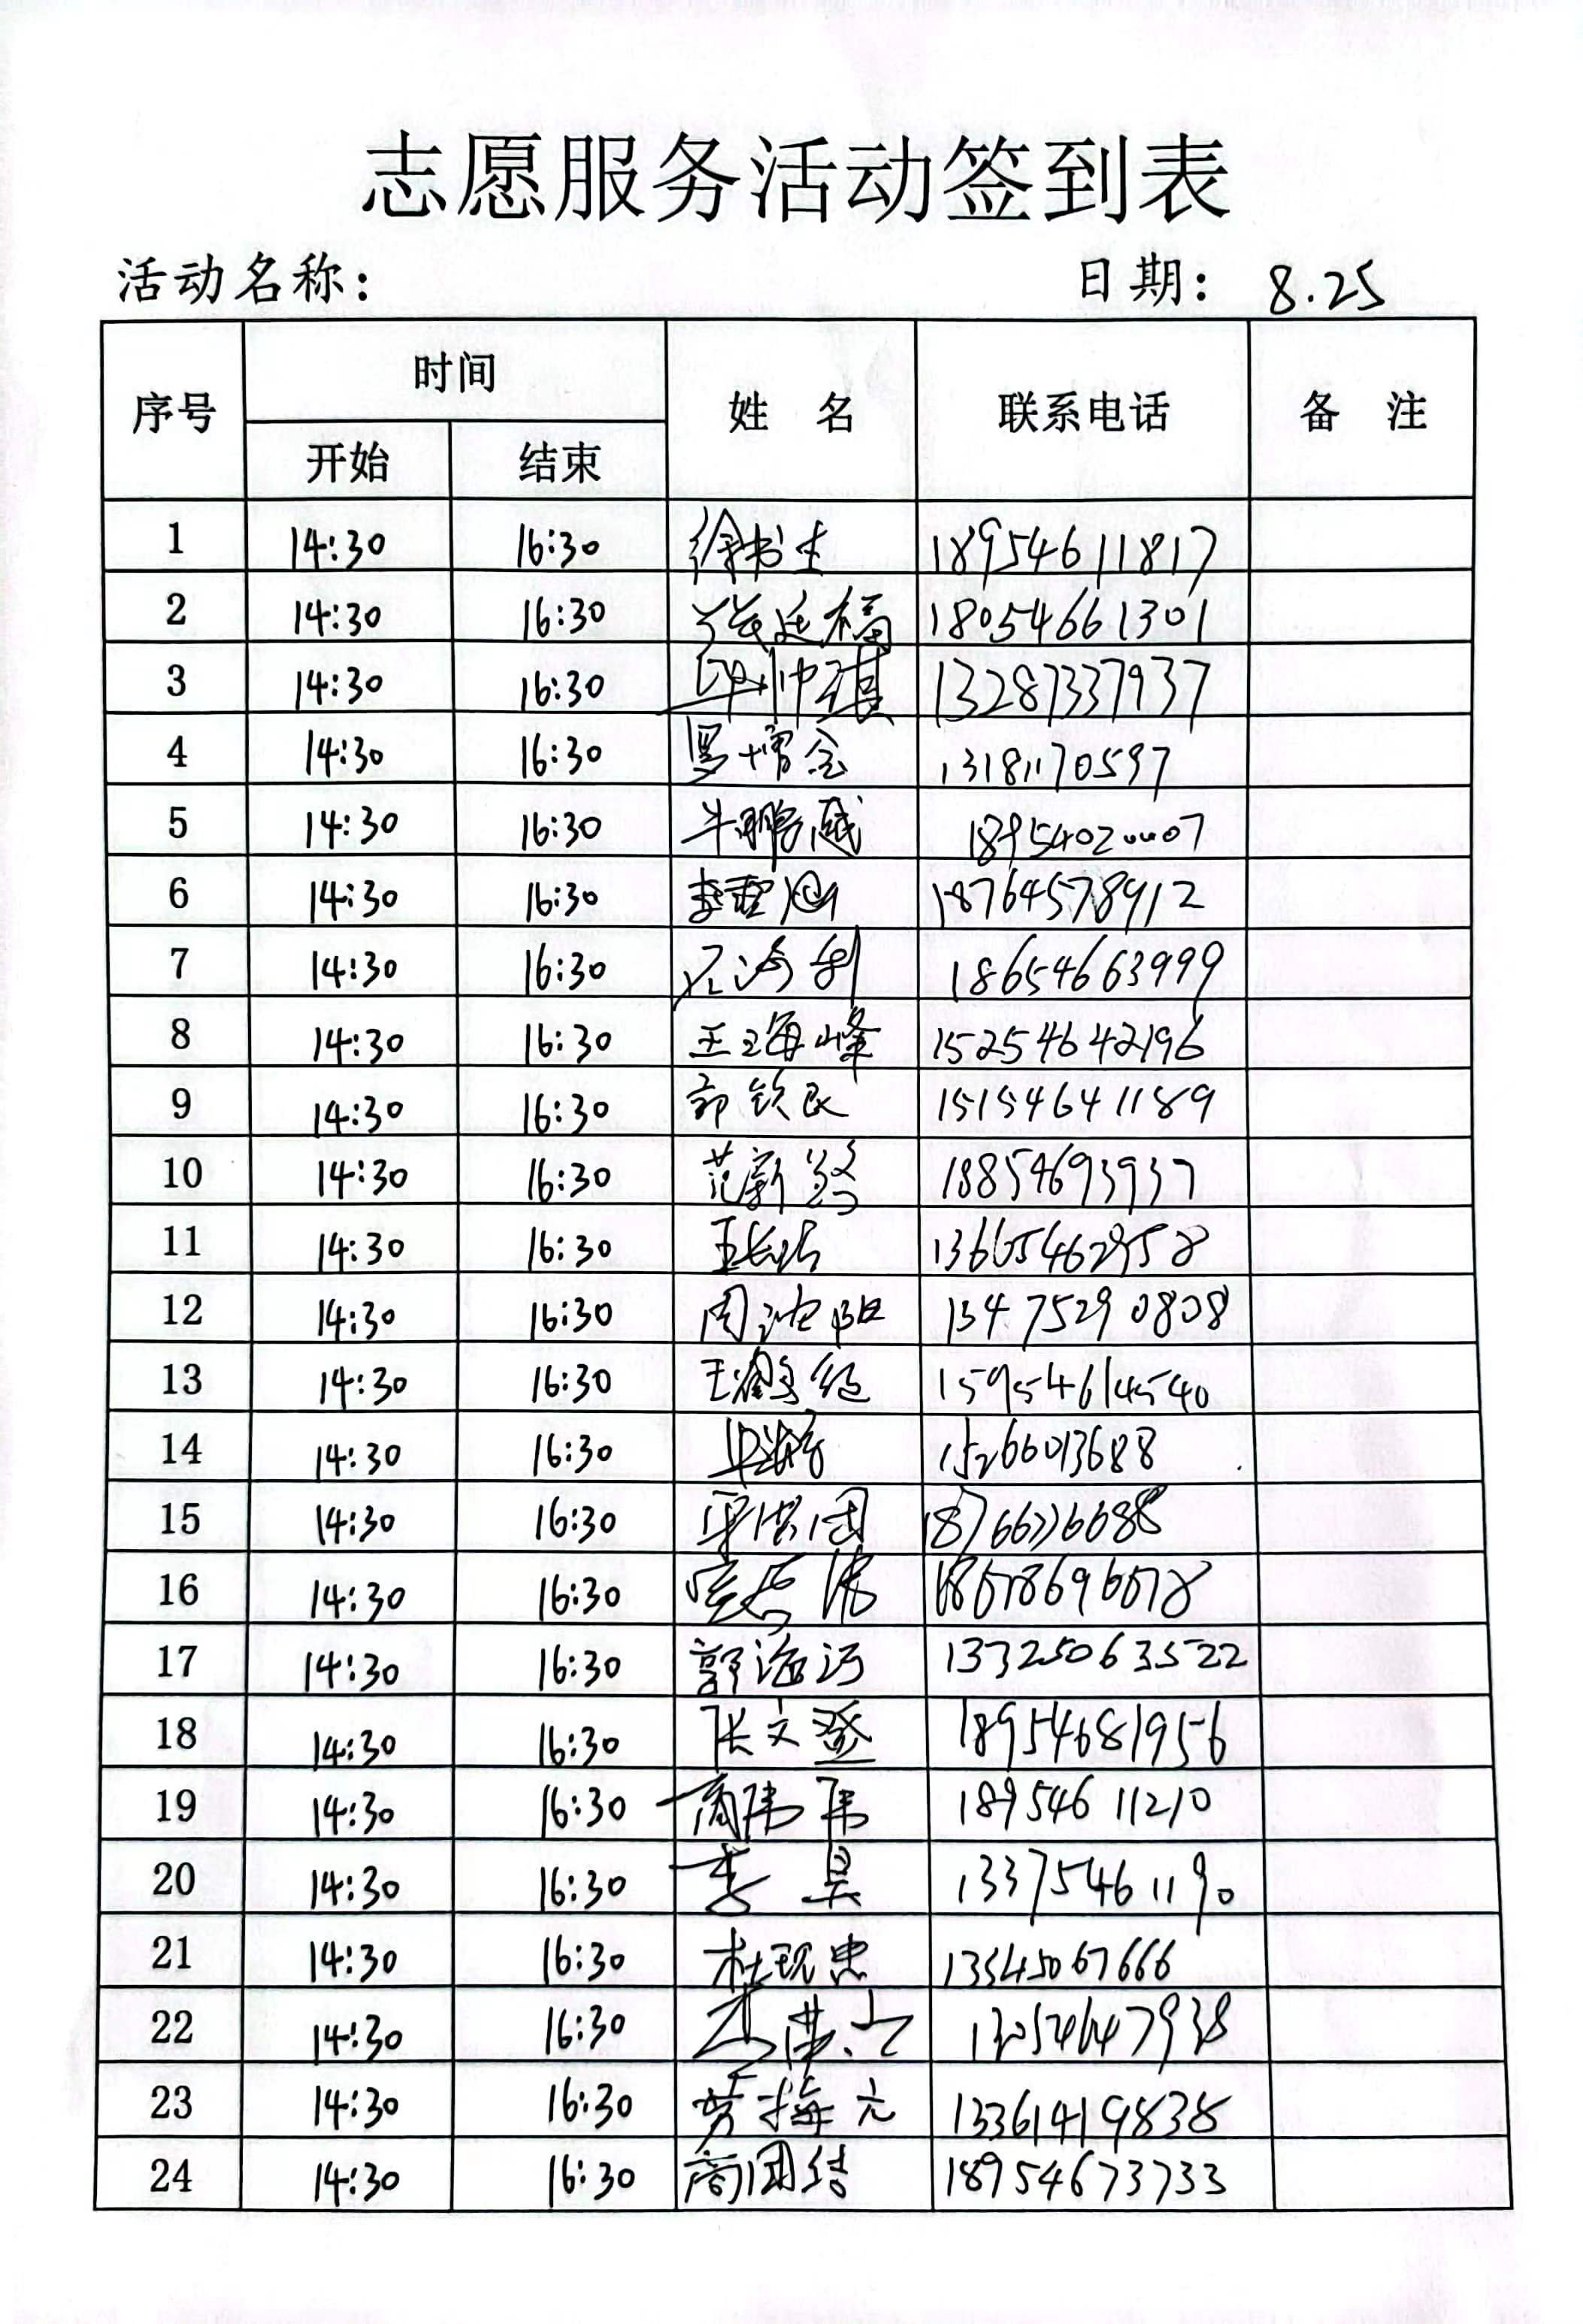 志愿服务活动签到表
活动名称： 日期： 8.25
序号 时间 姓 名 联系电话 备 注
开始 结束
1 14:30 16:30 徐书生 18954611817
2 14:30 16:30 延福 18054661301
3 14:30 16:30 毕帅琪 13287337937
4 14:30 16:30 罗增金 13181170597
5 14:30 16:30 牛鹏盛 18954020007
6 14:30 16:30 李 18764578912
7 14:30 16:30 石海利 18654663999
8 14:30 16:30 王海峰 15254642196
9 14:30 16:30 郭钦民 15154641189
10 14:30 16:30 范新 18854693937
11 14:30 16:30 王长 13665462958
12 14:30 16:30 周沈阳 13475290808
13 14:30 16:30 王 15954614540
14 14:30 16:30 15266013688
15 14:30 16:30 团 18766776688
16 14:30 16:30
17 14:30 16:30 郭海河 13325063522
18 14:30 16:30 张文盛 18954681956
19 14:30 16:30 商伟伟 18954611210
20 14:30 16:30 李昊 13375461190
21 14:30 16:30 杜现忠 13545067666
22 14:30 16:30 13054647938
23 14:30 16:30 劳梅元 13361419838
24 14:30 16:30 商团结 18954673733